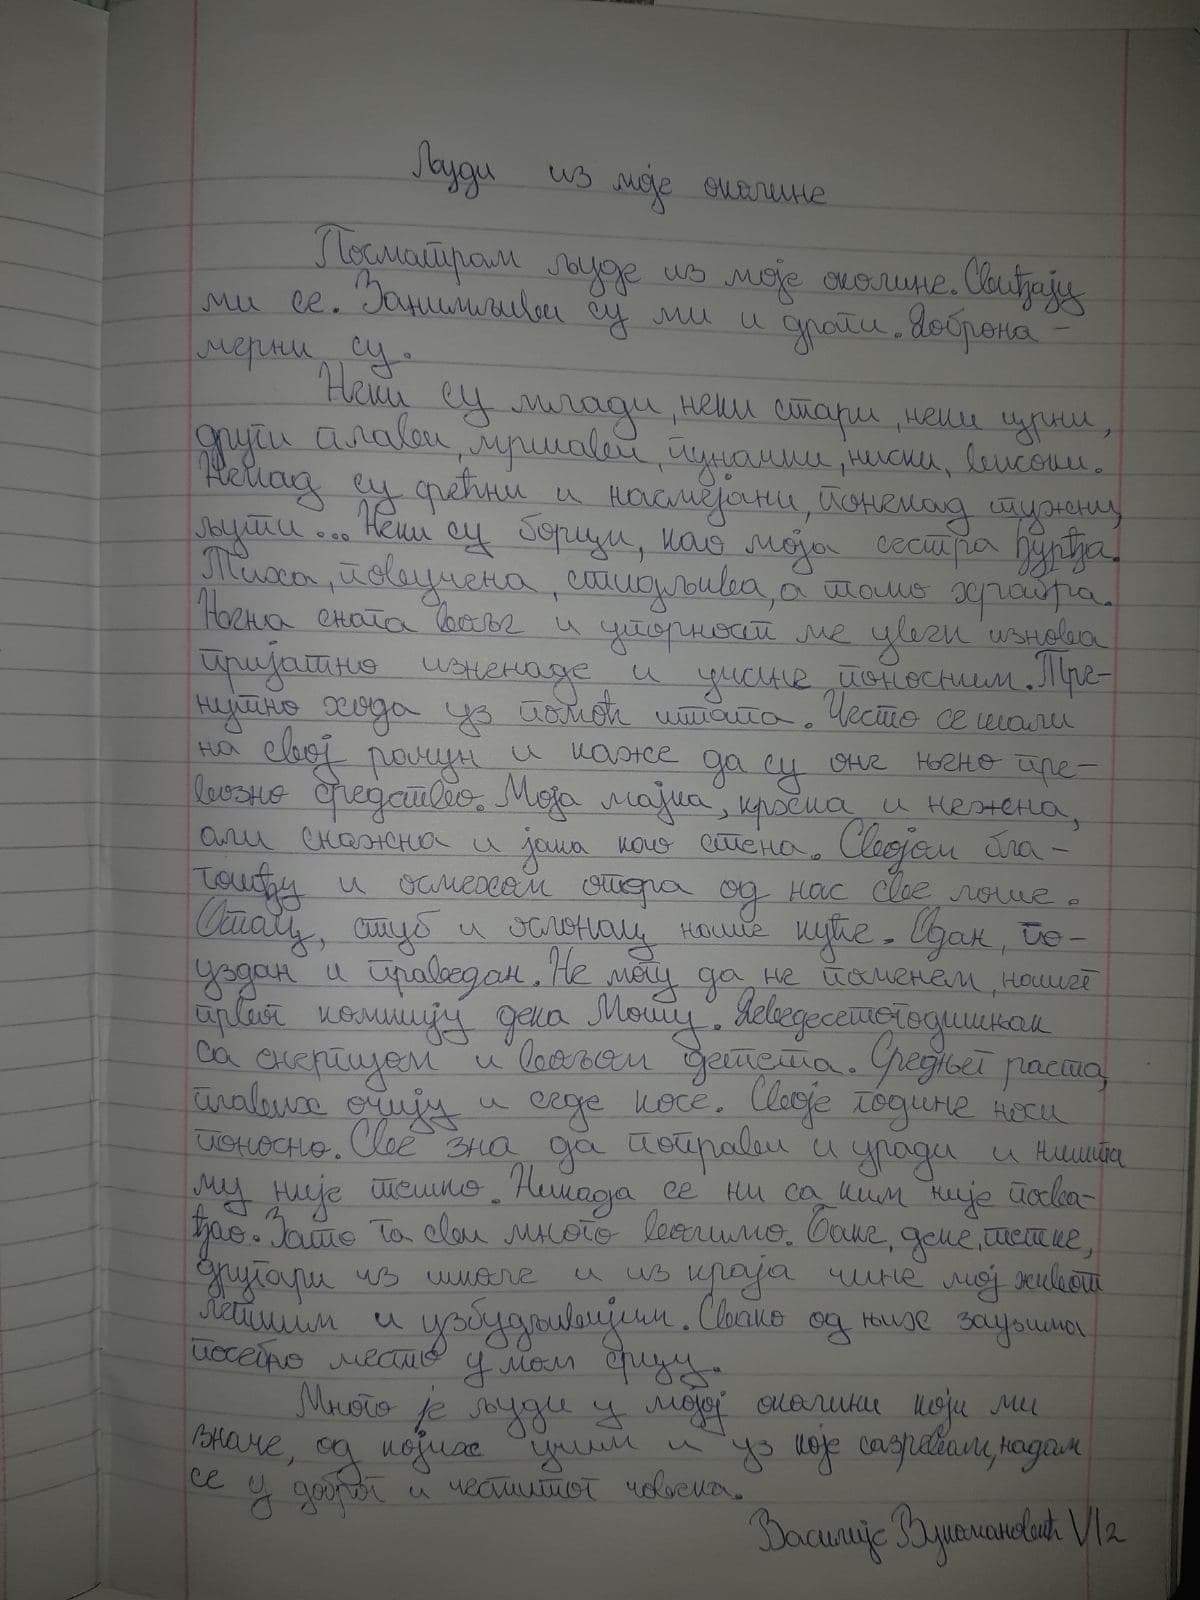 Људи из моје околине
Посматрам људе из моје околине. Свиђају
ми се. Занимљиви су ми и драги. Доброна-
мерни су.
Неки су млади, неки стари, неки црни,
други плави, мршави, пуначки, ниски, високи.
Некад су срећни и насмејани, понекад тужни,
љути... Неки су борци, као моја сестра Ђурђа.
Тиха, повучена, стидљива, а тако храбра.
Њена снага воље и упорност ме увек изнова
пријатно изненаде и учине поносним. Тре-
нутно хода уз помоћ штапа. Често се шали
на свој рачун и каже да су оне њено пре-
возно средство. Моја мајка, кроска и нежна,
али снажна и јака као стена. Својом бла-
гошћу и осмехом отера од нас све лоше.
Отац, стуб и ослонац наше куће. Одан, по-
уздан и праведан. Не могу да не поменем, нашег
првог комшију деку Мошу. Деведесетогодишњак
са енергијом и вољом детета. Средњег раста,
плавих очију и седе косе. Своје године носи
поносно. Све зна да поправи и уради и ништа
му није тешко. Никада се ни са ким није посва-
ђао. Зато га сви много волимо. Баке, деке, тетке,
другари из школе и из краја чине мој живот
лепшим и узбудљивијим. Свако од њих заузима
посебно место у мом срцу.
Много је људи у мојој околини који ми
значе, од којих учим и уз које сазревам, надам
се у доброг и честитог човека.
Василије Вукомановић VI2